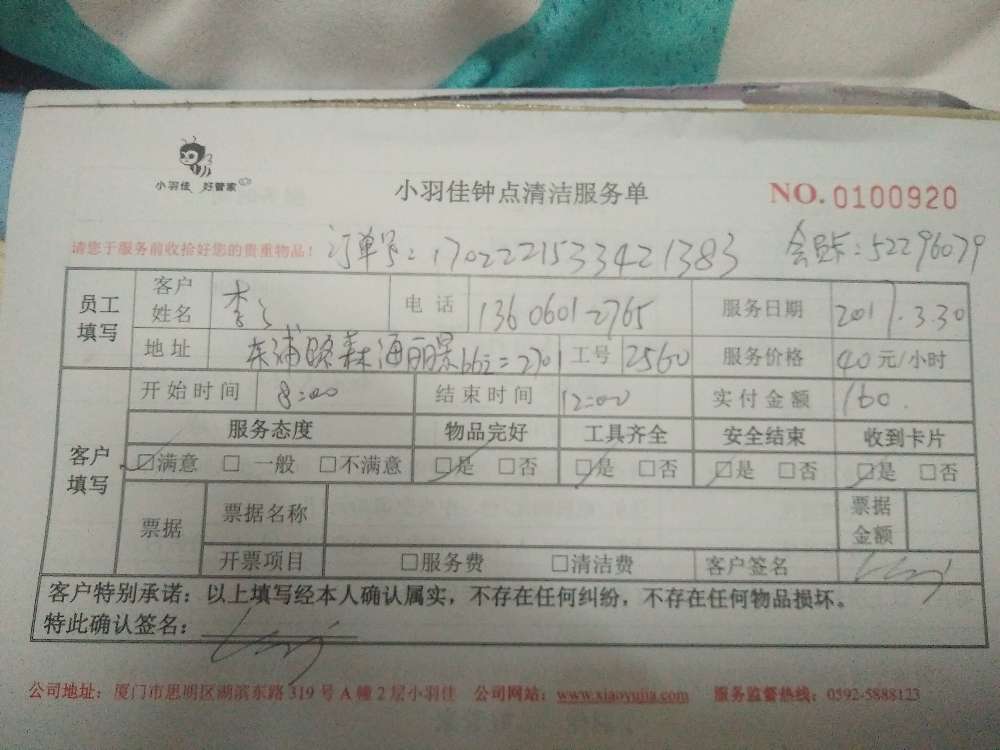 小羽佳 好管家
小羽佳钟点清洁服务单
NO. 0100920
请您于服务前收拾好您的贵重物品！ 订单号：1702221533421383 会员卡：52296079
员工填写 客户姓名 李 电话 13606012765 服务日期 2017.3.30
地址 东浦路森海丽景 2701 工号 2560 服务价格 40元/小时
客户填写 开始时间 8:00 结束时间 12:00 实付金额 160.
服务态度 物品完好 工具齐全 安全结束 收到卡片
☑满意 □一般 □不满意 ☑是 □否 ☑是 □否 ☑是 □否 ☑是 □否
票据 票据名称 票据金额
开票项目 □服务费 □清洁费 客户签名
客户特别承诺：以上填写经本人确认属实，不存在任何纠纷，不存在任何物品损坏。
特此确认签名：
公司地址：厦门市思明区湖滨东路319号A幢2层小羽佳 公司网站：www.xiaoyujia.com 服务监督热线：0592-5888123